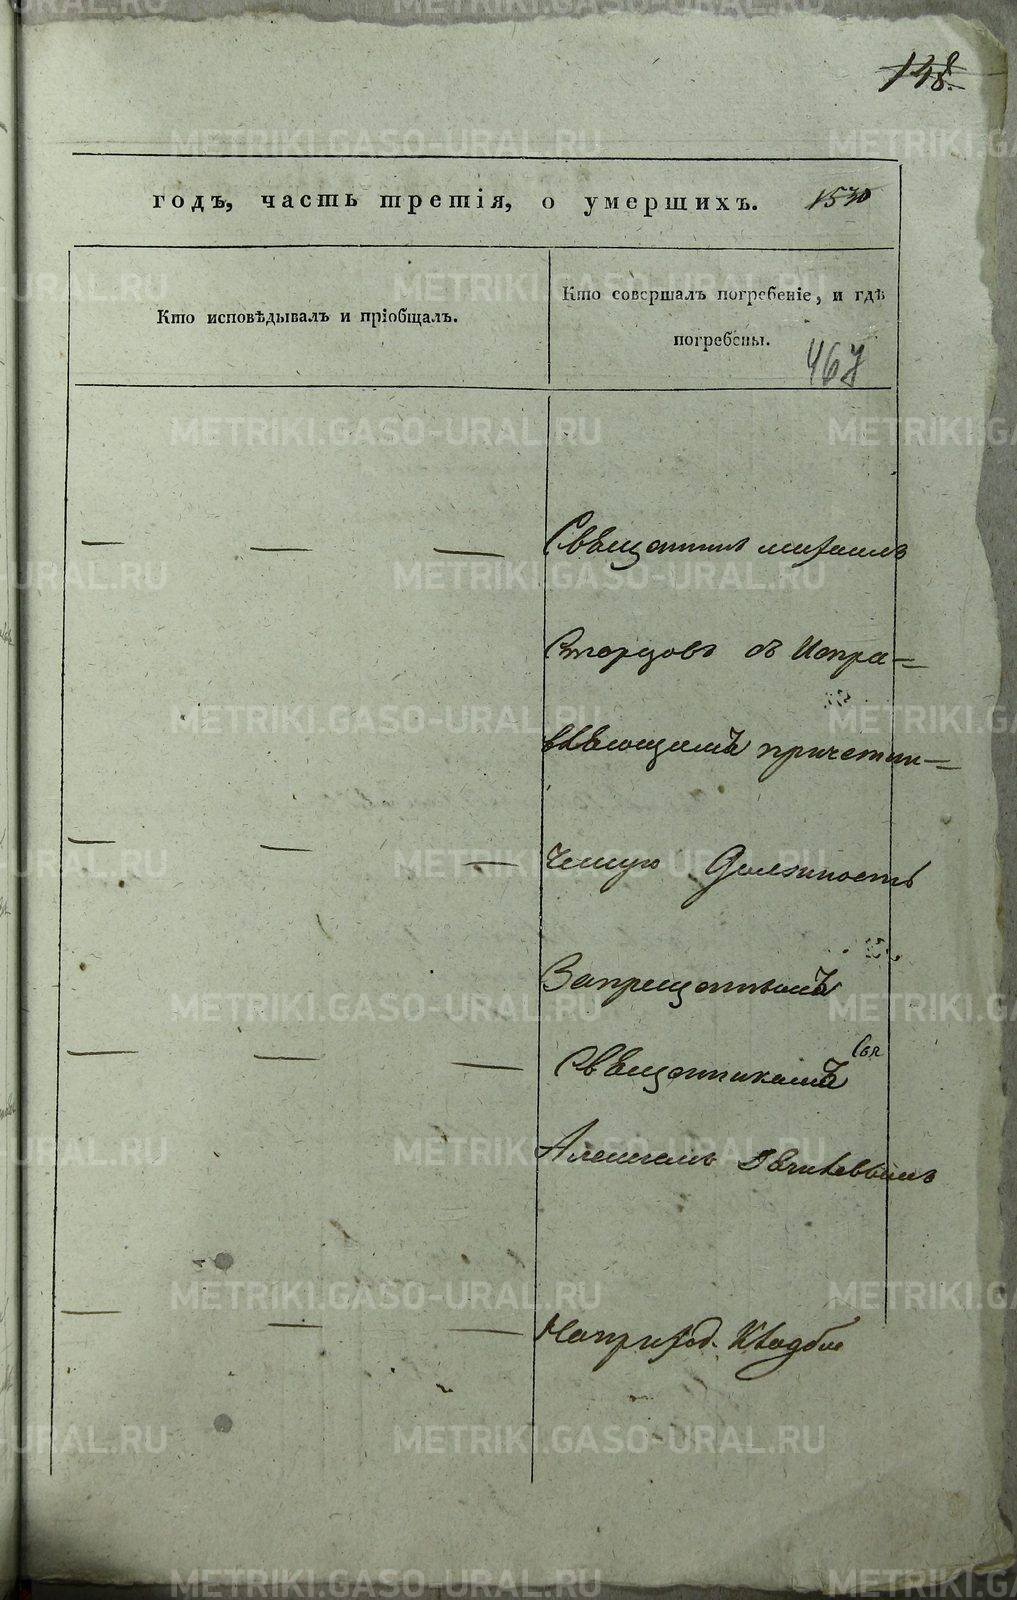 148.
годъ, часть третія, о умершихъ. 1530
Кто исповѣдывалъ и пріобщалъ.
Кто совершалъ погребеніе, и гдѣ
погребены.
467
Священникъ михаилъ
съ Испра=
вляющимъ причетни=
ческую Должность
Запрещеннымъ
Священникомъ
Алексеемъ
Наприход. Кладби
METRIKI.GASO-URAL.RU